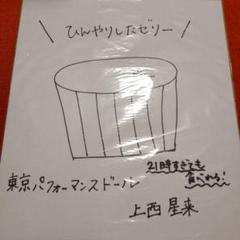 \ ひんやりしたゼリー /
21時すぎても
食べられる!
東京パフォーマンスドール
上西星来